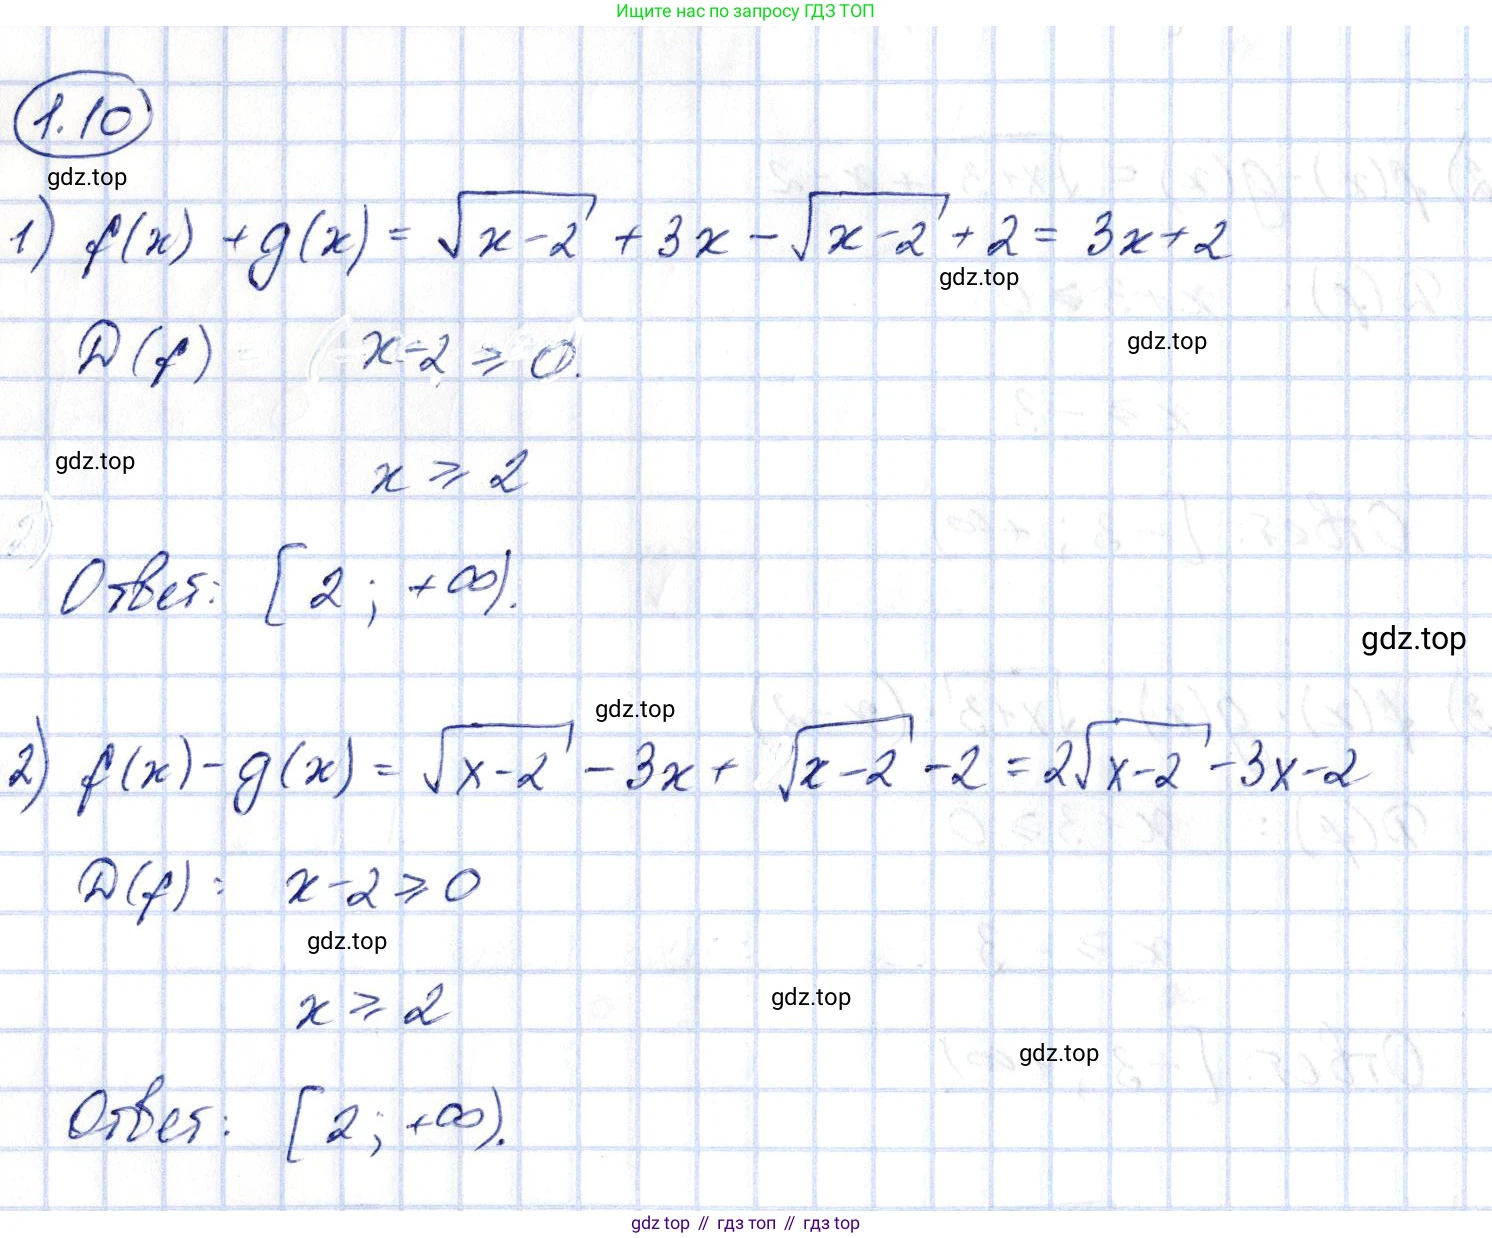 Ищите нас по запросу ГДЗ ТОП
1.10
gdz.top
1) f(x) + g(x) = √(x-2) + 3x - √(x-2) + 2 = 3x+2
gdz.top
D(f) x-2 ⩾ 0.
gdz.top
gdz.top
x ⩾ 2
Ответ: [2; +∞).
gdz.top
gdz.top
2) f(x) - g(x) = √(x-2) - 3x + √(x-2) - 2 = 2√(x-2) - 3x - 2
D(f): x-2 ⩾ 0
gdz.top
x ⩾ 2
gdz.top
gdz.top
Ответ: [2; +∞).
gdz top // гдз топ // гдз top